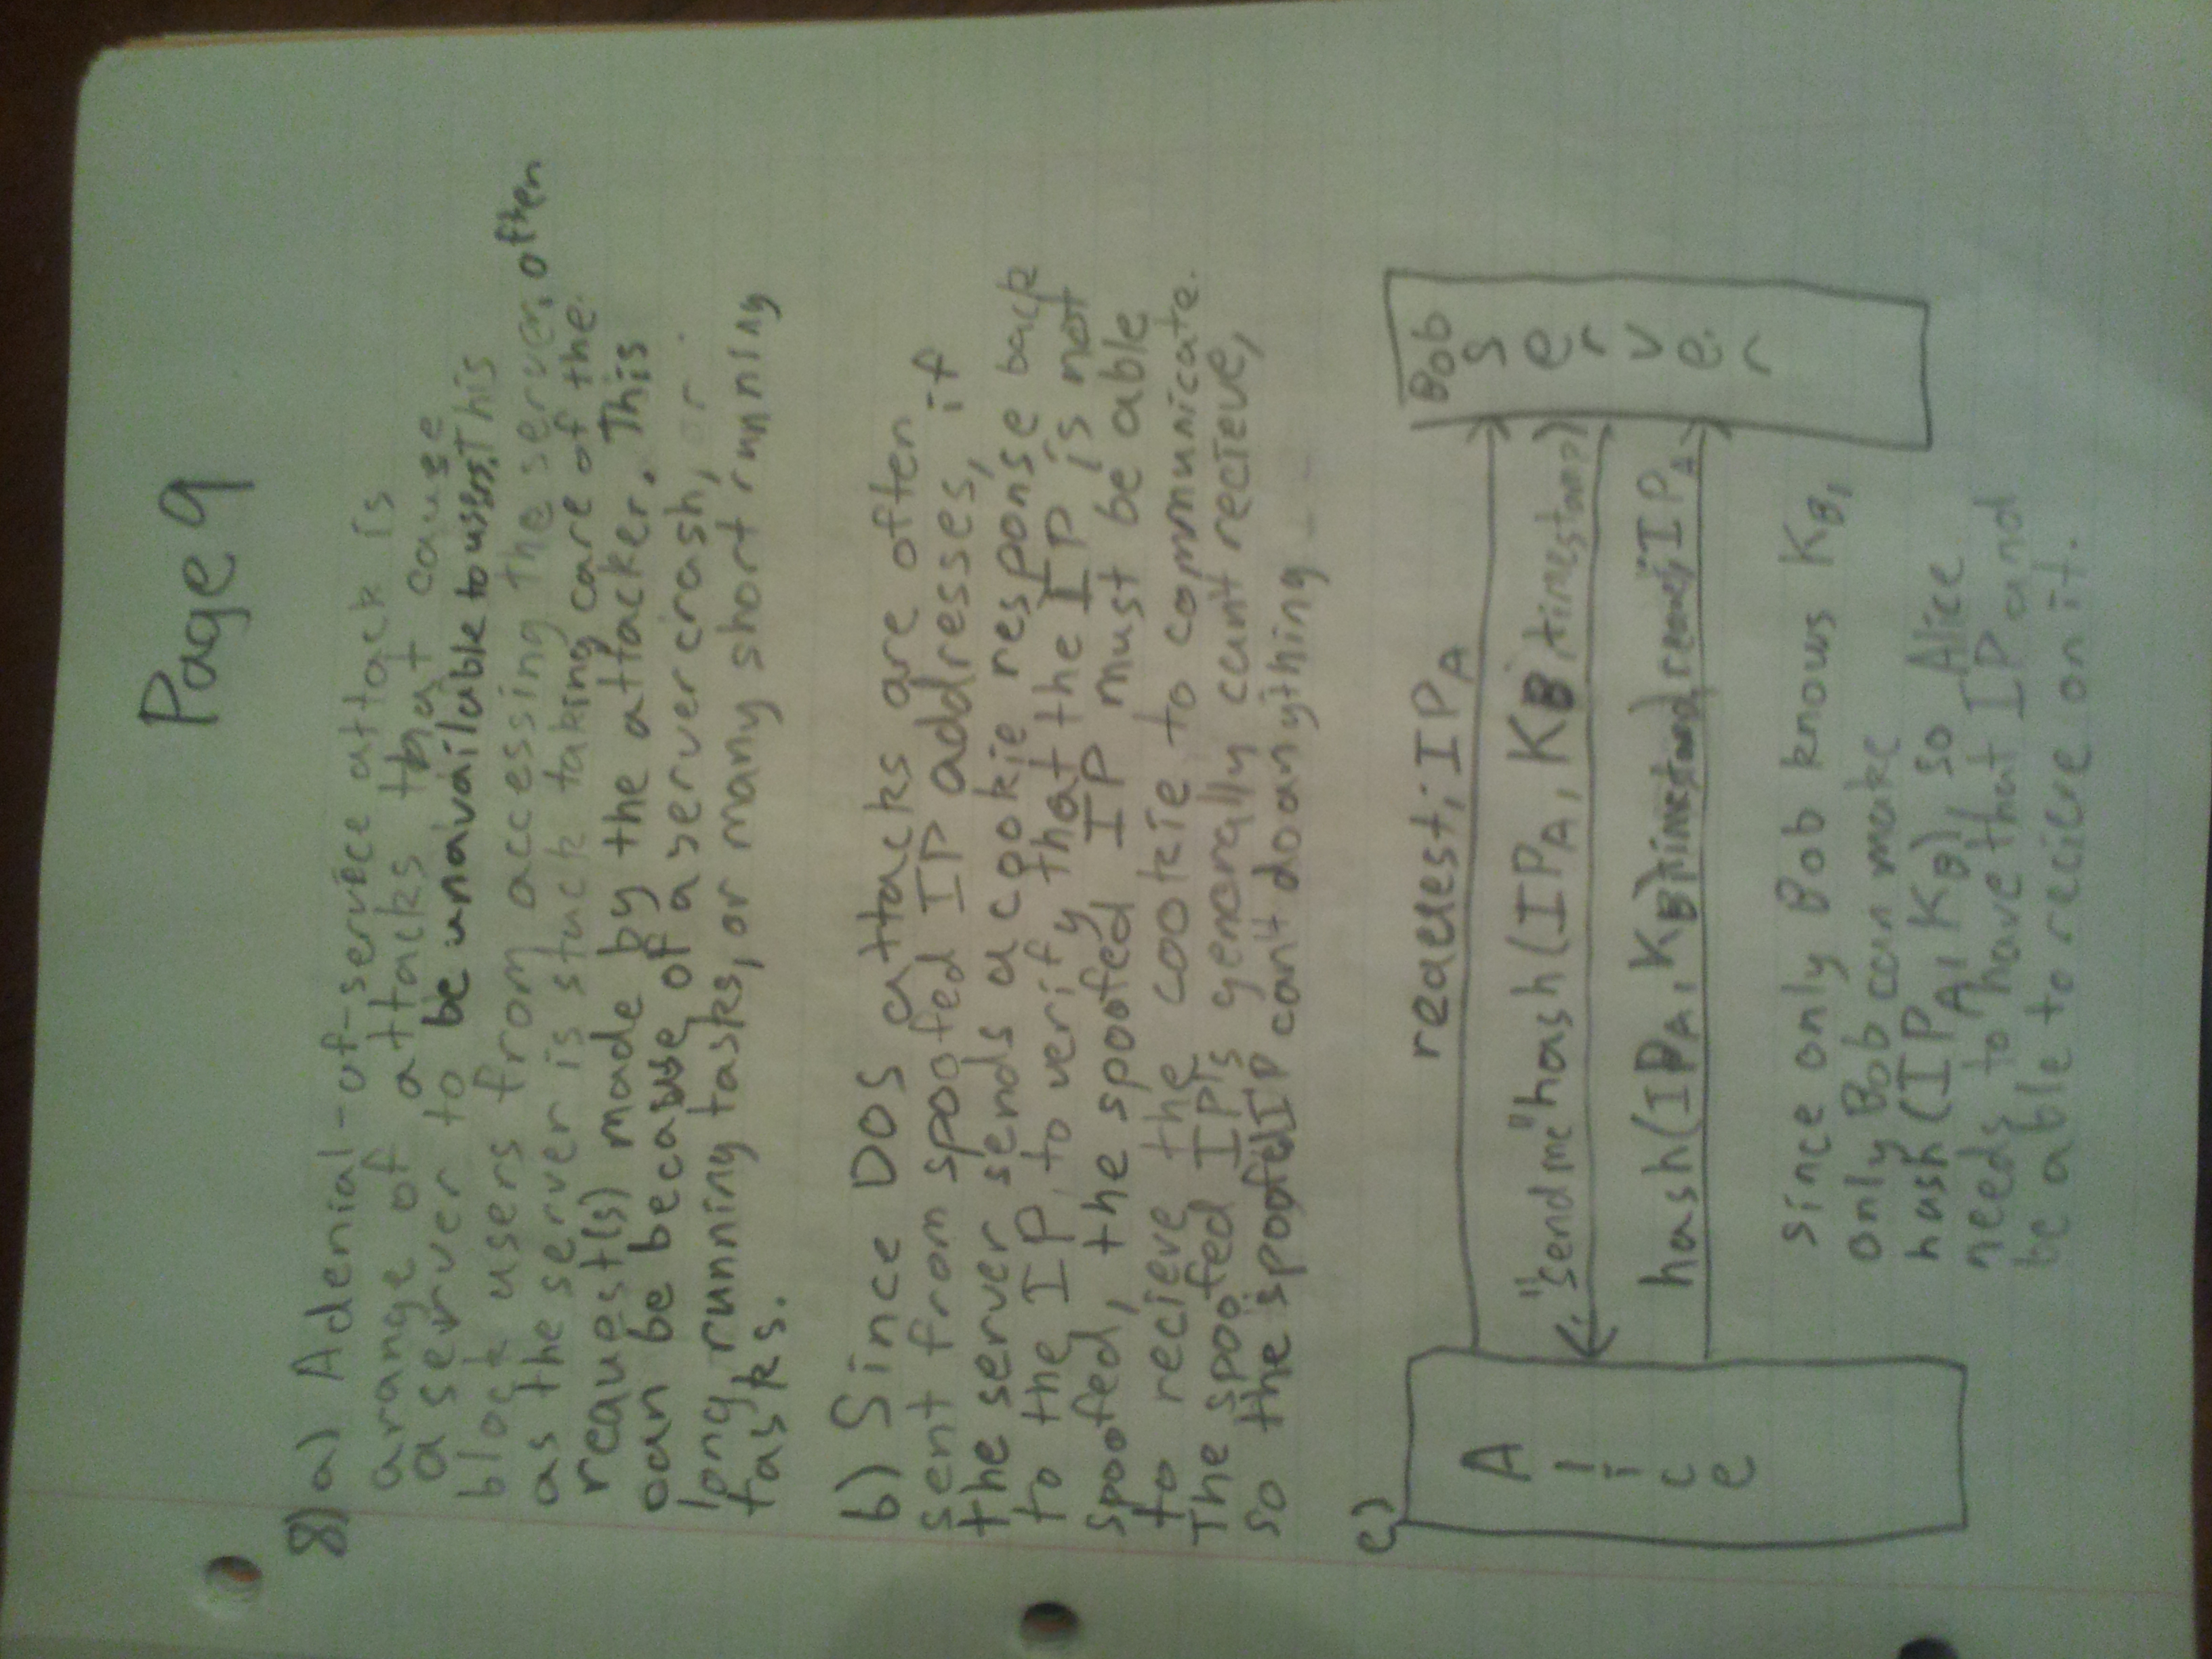 Page 9
8) a) A denial-of-service attack is
a range of attacks that cause
a server to be unavailable to users. This
block users from accessing the server, often
as the server is stuck taking care of the
request(s) made by the attacker. This
can be because of a server crash, or
long running tasks, or many short running
tasks.
b) Since DOS attacks are often
sent from spoofed IP addresses, if
the server sends a cookie response back
to the IP, to verify that the IP is not
spoofed, the spoofed IP must be able
to recieve the cookie to communicate.
The spoofed IP's generally can't recieve,
so the spoofed IP can't do anything
c)
Alice
Bob
server
request; IPA
"send me" hash(IPA, KB, timestamp)
hash(IPA, KB, timestamp), IPA
since only Bob knows KB,
only Bob can make
hash(IPA, KB), so Alice
needs to have that IP and
be able to recieve on it.